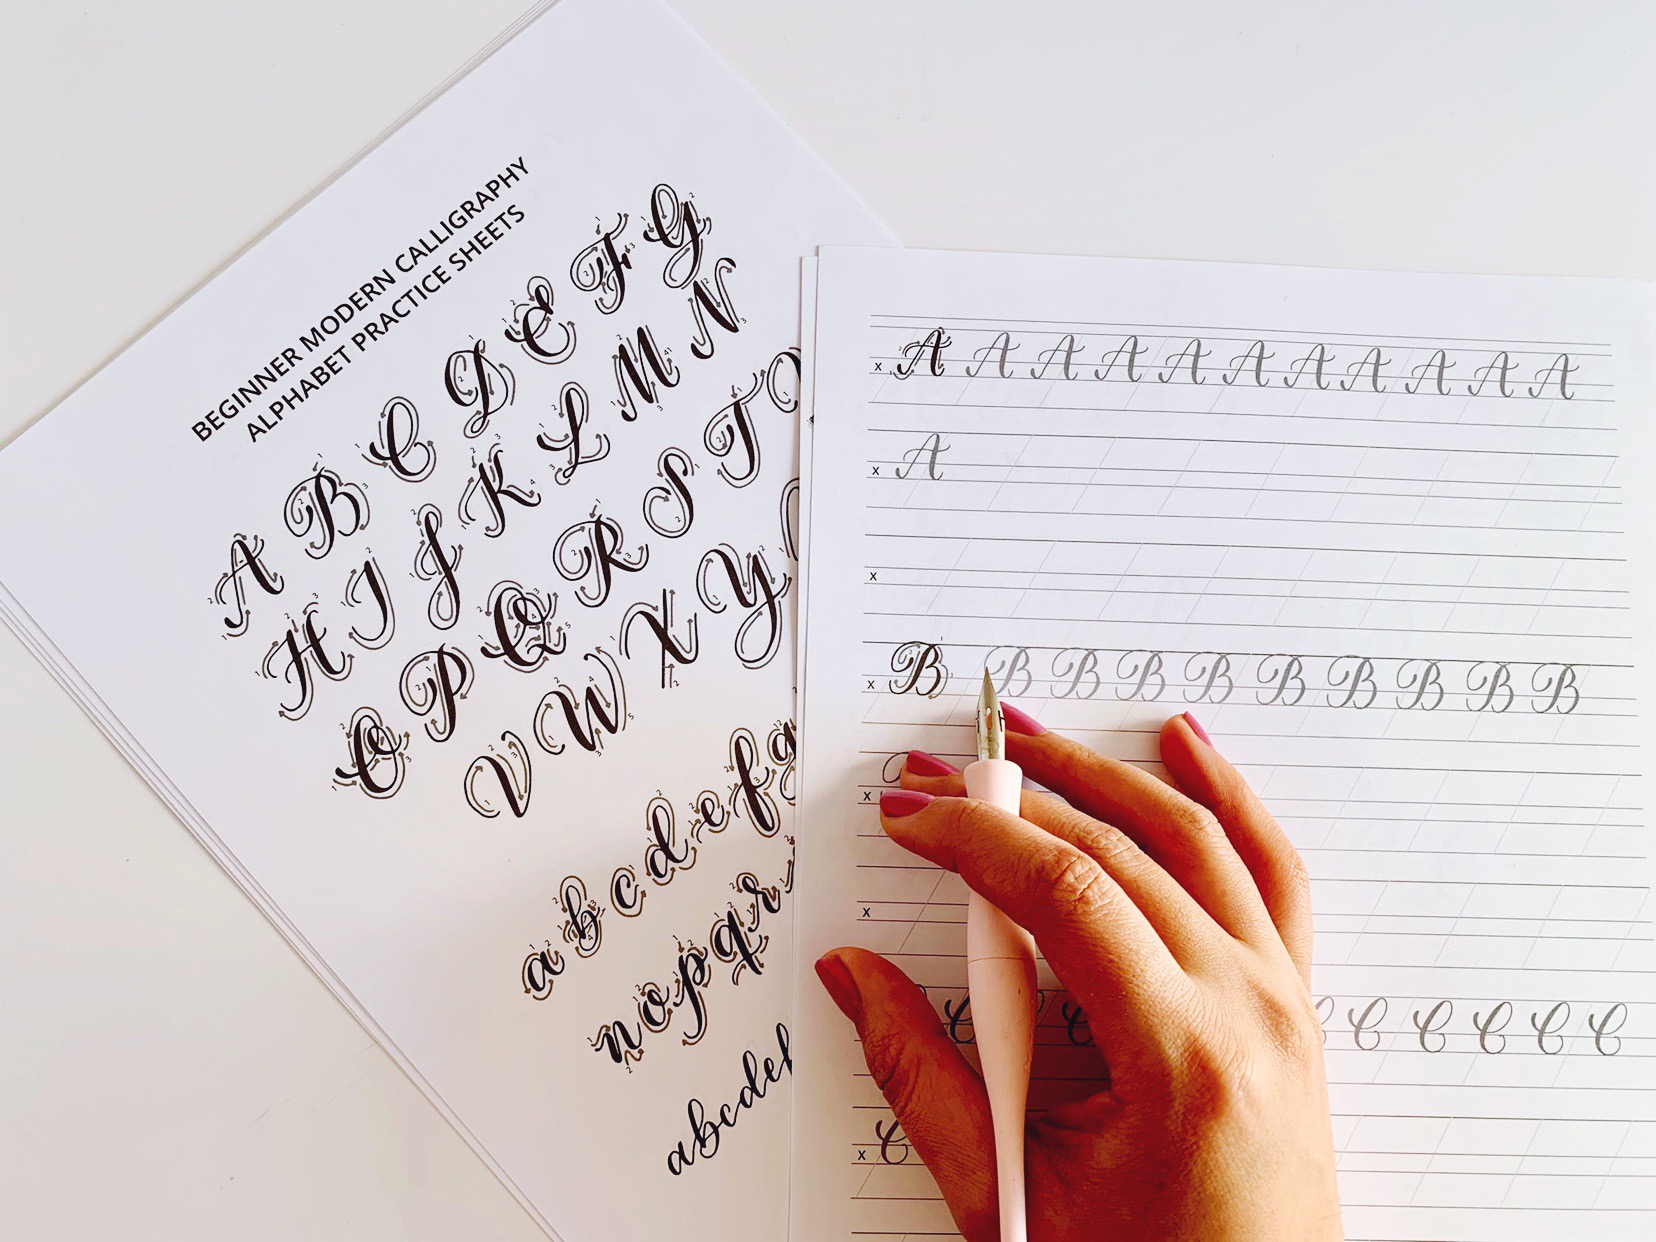 BEGINNER MODERN CALLIGRAPHY
ALPHABET PRACTICE SHEETS
A B C D E F G
H I J K L M N
O P Q R S T
V W X Y
a b c d e f g
n o p q r
abcdef
x A A A A A A A A A A A
x A
x
x B B B B B B B B B B
x
x
C C C C C C C
x C